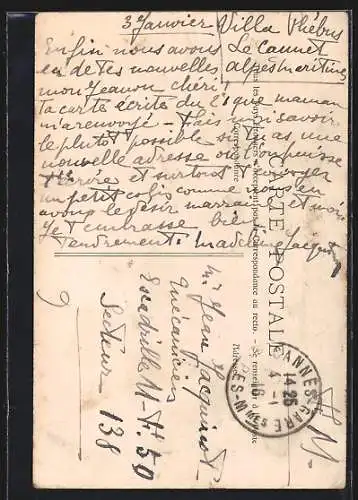 3 Janvier Villa Phébus
Enfin nous avons Le Cannet
eu de tes nouvelles Alpes maritimes
mon Jeannon chéri!
ta carte écrite du que maman
m'a renvoyé - Fais moi savoir
le plutôt possible si tu as une
nouvelle adresse où l'on puisse
t'écrire et surtout t'envoyer
un petit colis comme nous en
avons le désir marraine et moi
Je t'embrasse bien
Tendrement Madeleine Jacquinot
CARTE POSTALE
Correspondance au recto. - Se renseigner à la Poste
Adresse
Mr Jean Jacquinot
Mécanicien
Escadrille N- 50
Secteur 138
CANNES-GARE
14 25
4 -1
16
ALPES-MMES
F M
9